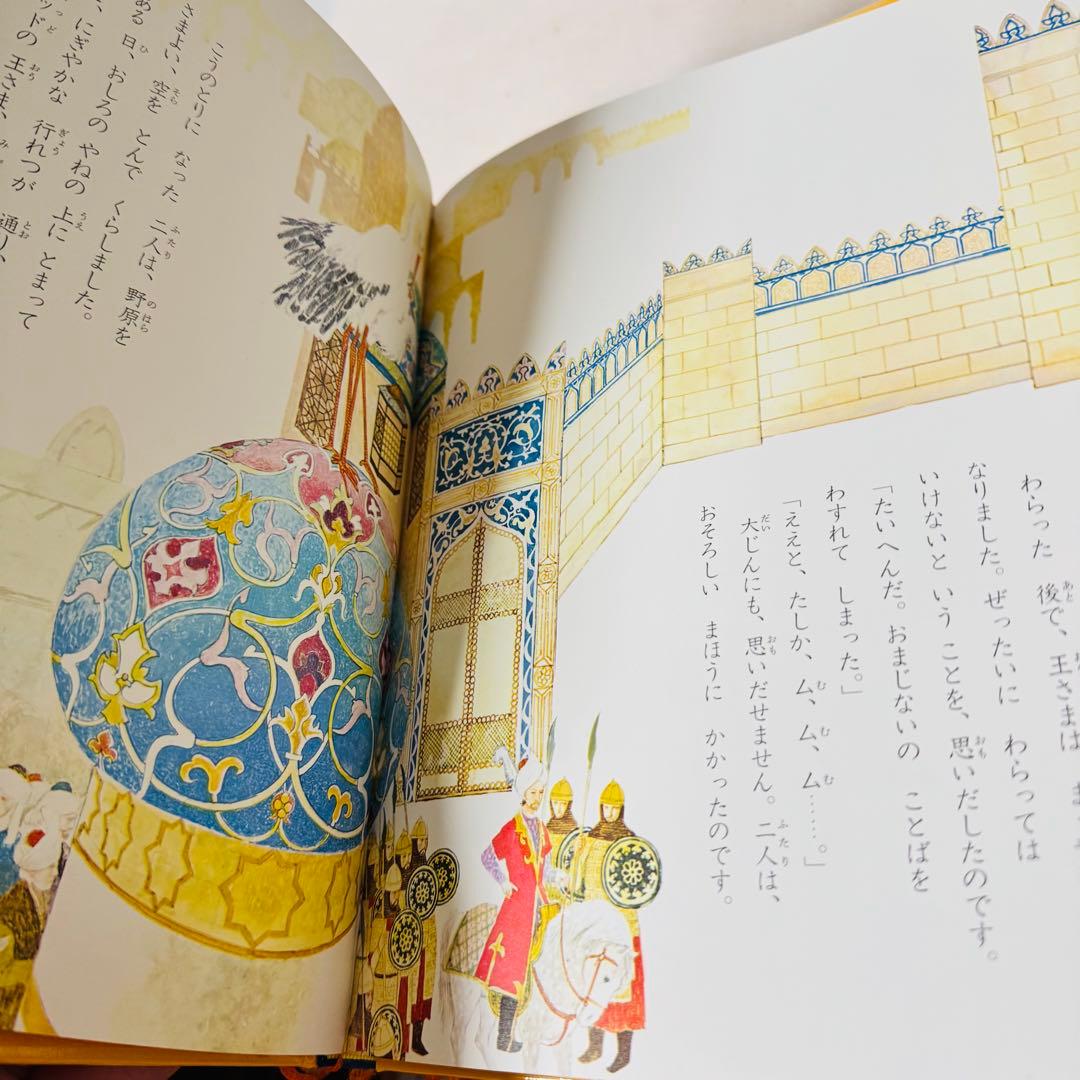 わらった 後で、王さまは
なりました。ぜったいに わらっては
いけないと いう ことを、思いだしたのです。
「たいへんだ。おまじないの ことばを
わすれて しまった。」
「ええと、たしか、ム、ム、ム……。」
大じんにも、思いだせません。二人は、
おそろしい まほうに かかったのです。
こうのとりに なった 二人は、野原を
さまよい、空を とんで くらしました。
ある 日、おしろの やねの 上に とまって
、にぎやかな 行れつが 通り、
ッドの 王さま、